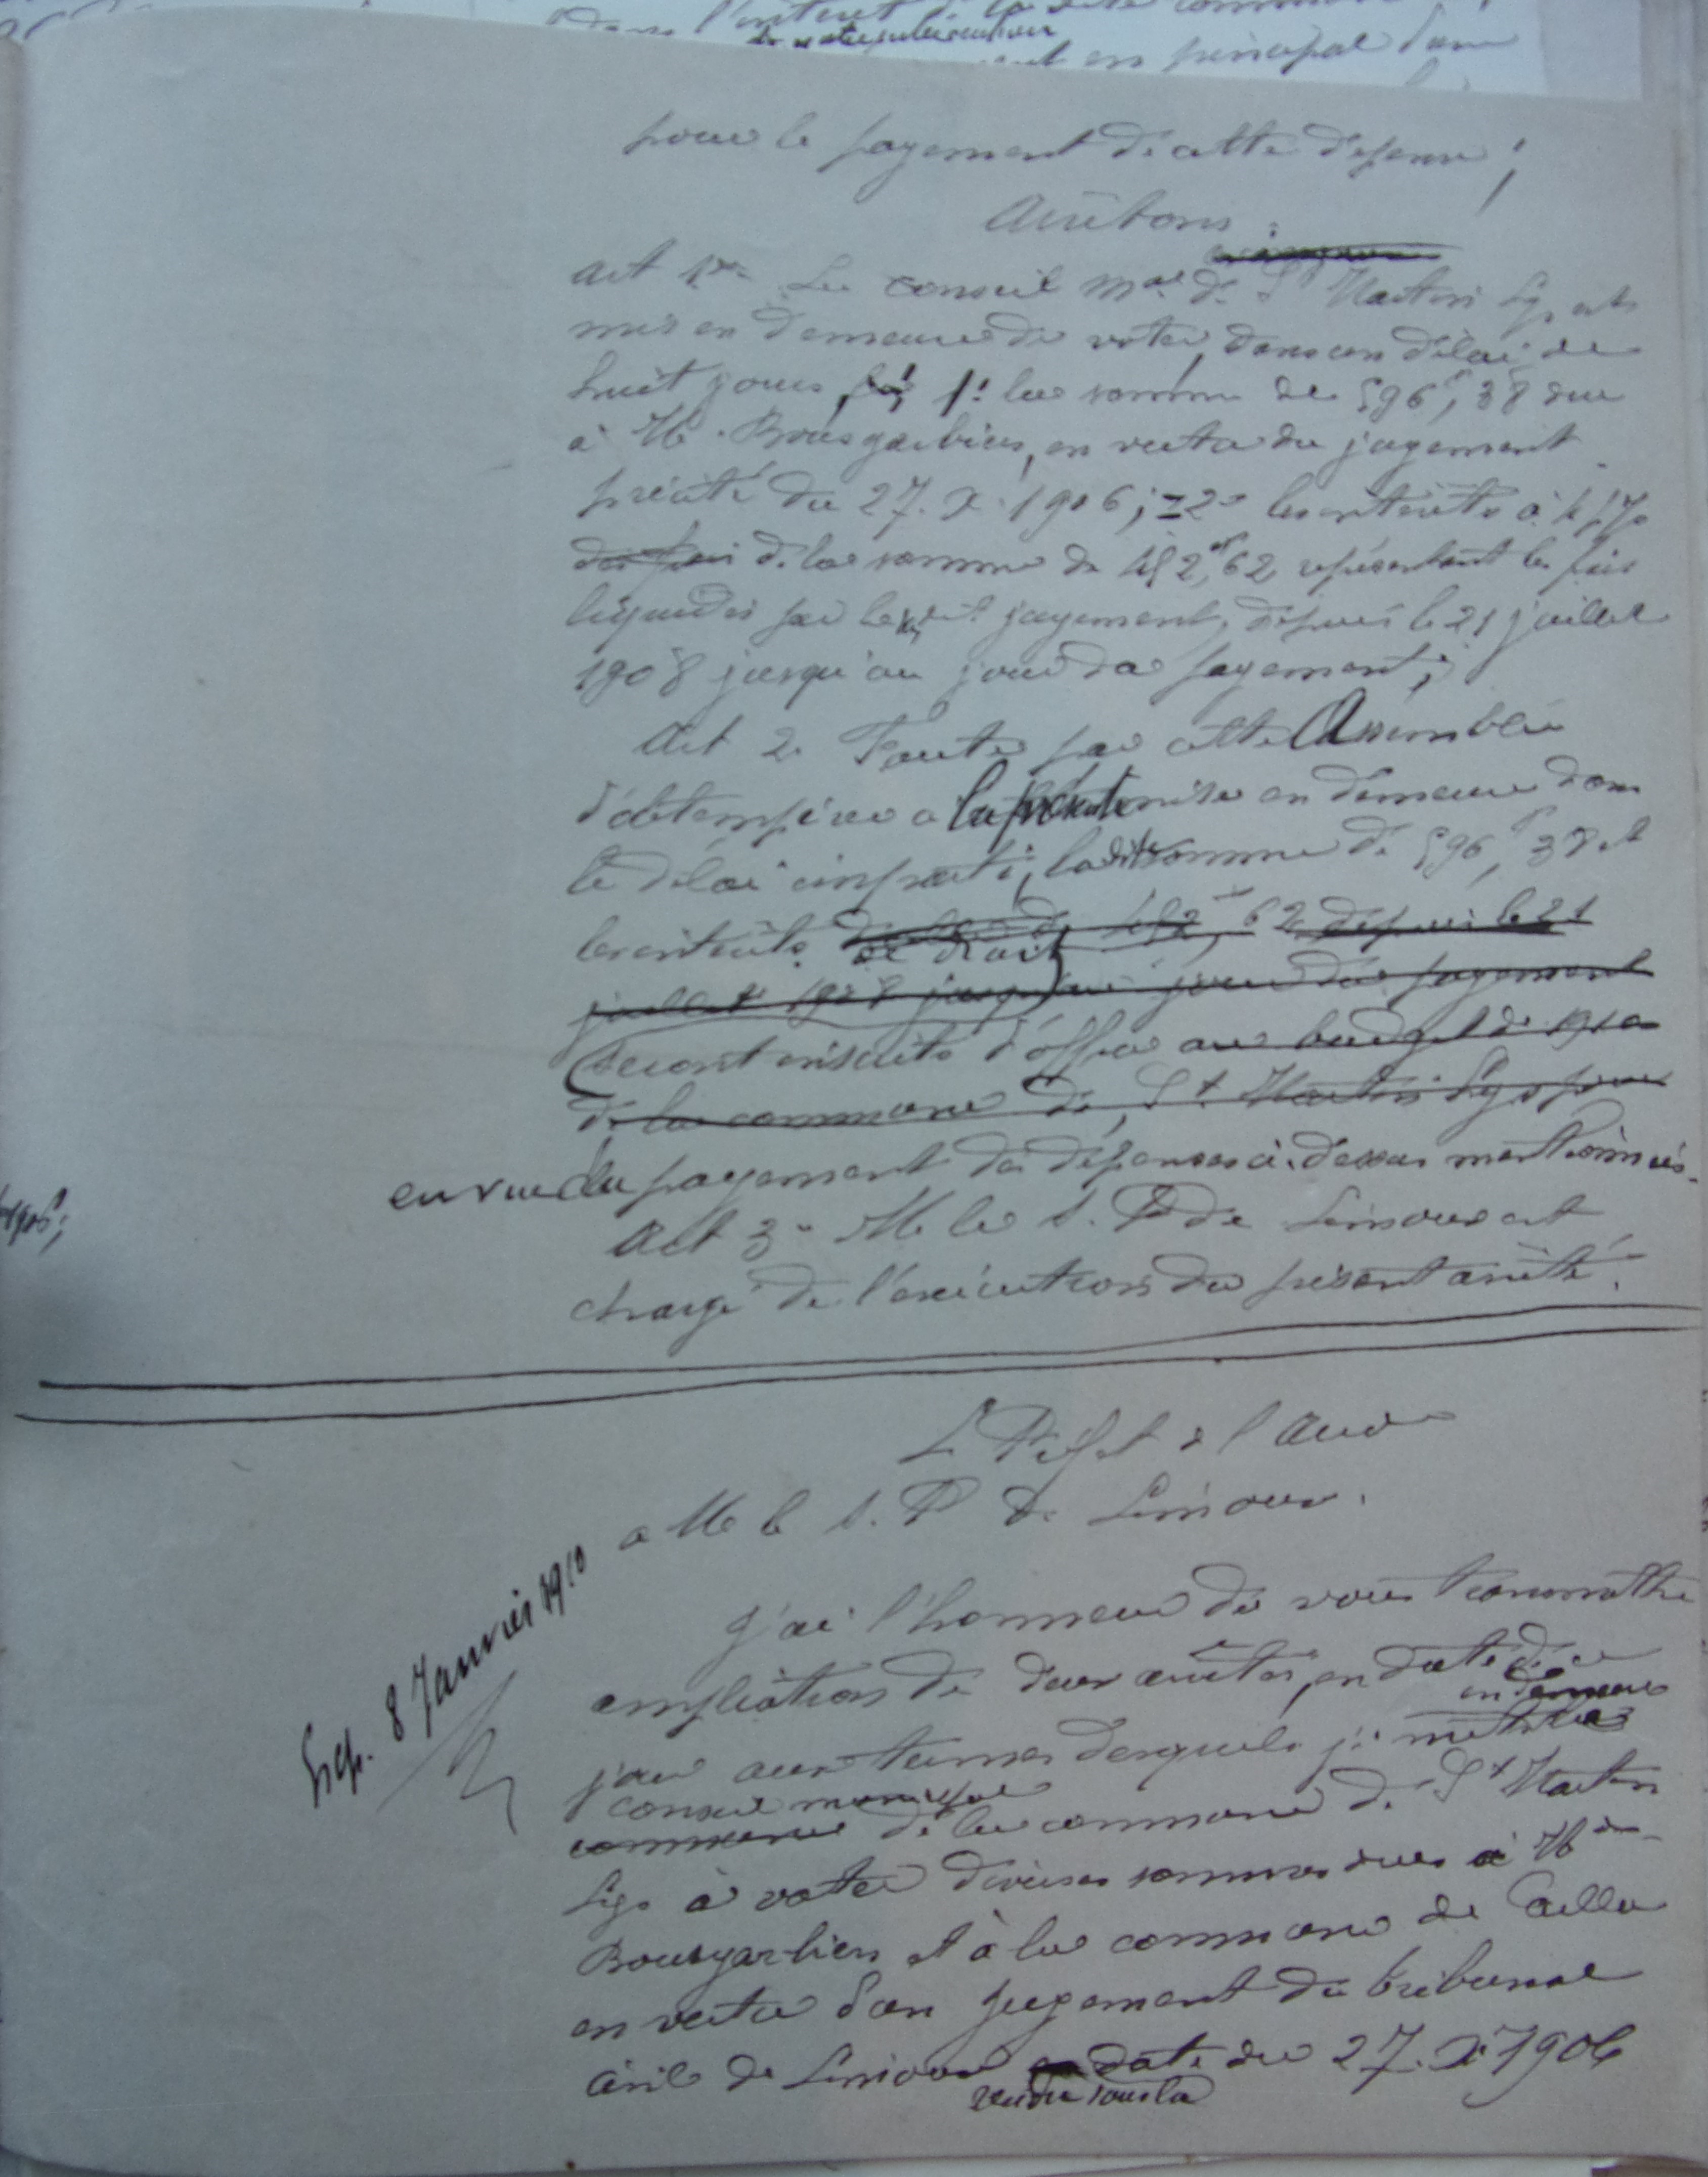 dans l'intérêt de la dite commune
en principal d'une
pour le payement de cette dépense ;
Arrêtons :
Art 1er Le conseil mal de St Martin Lys est
mis en demeure de voter, dans un délai de
huit jours, 1º la somme de 596f,38 due
à M. Bousgarbiès, en vertu du jugement
précité du 27. X. 1906 ; 2º les intérêts à 4f %
des frais de la somme de 452f,62 représentant les frais
liquidés par le dit jugement, depuis le 21 juillet
1908 jusqu'au jour du payement ;
Art 2. Faute par cette Assemblée
d'obtempérer à la présente mise en demeure dans
le délai imparti, la dite somme de 596f,38 et
les intérêts de 452f,62 depuis le 21
de droit
juillet 1908 jusqu'au jour du payement
seront inscrits d'office au budget de 1910
de la commune de St Martin Lys pour
en vue du payement des dépenses ci-dessus mentionnées.
Art 3. M le S. P de Limoux est
chargé de l'exécution du présent arrêté.
L Préfet de l'Aude
a M le S. P de Limoux.
Exp. 8 Janvier 1910
J'ai l'honneur de vous transmettre
ampliation de deux arrêtés, en date de ce
en demeure
jour aux termes desquels je mets le
conseil municipal
commune de la commune de St Martin
Lys à voter diverses sommes dues à M
Bousgarbiès et à la commune de Cailla
en vertu d'un jugement du tribunal
civil de Limoux en date du 27. X. 1906
rendu sous la